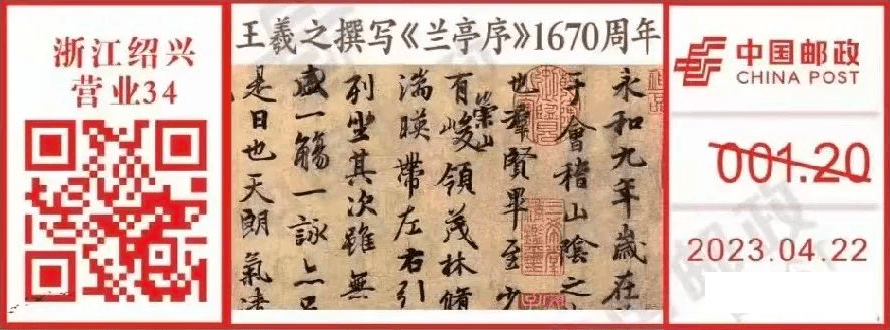 浙江绍兴
营业34
王羲之撰写《兰亭序》1670周年
永和九年歲在
于會稽山陰之
也羣賢畢至少
有崇山峻領茂林脩
湍暎帶左右引
列坐其次雖無
盛一觴一詠亦足
是日也天朗氣清
中国邮政
CHINA POST
001.20
2023.04.22